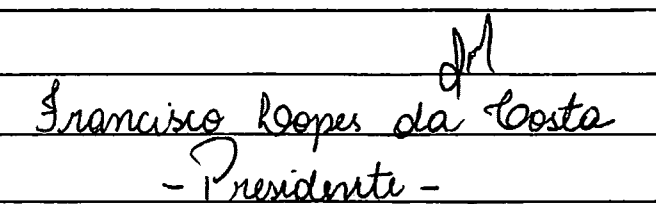 Francisco Lopes da Costa
- Presidente -